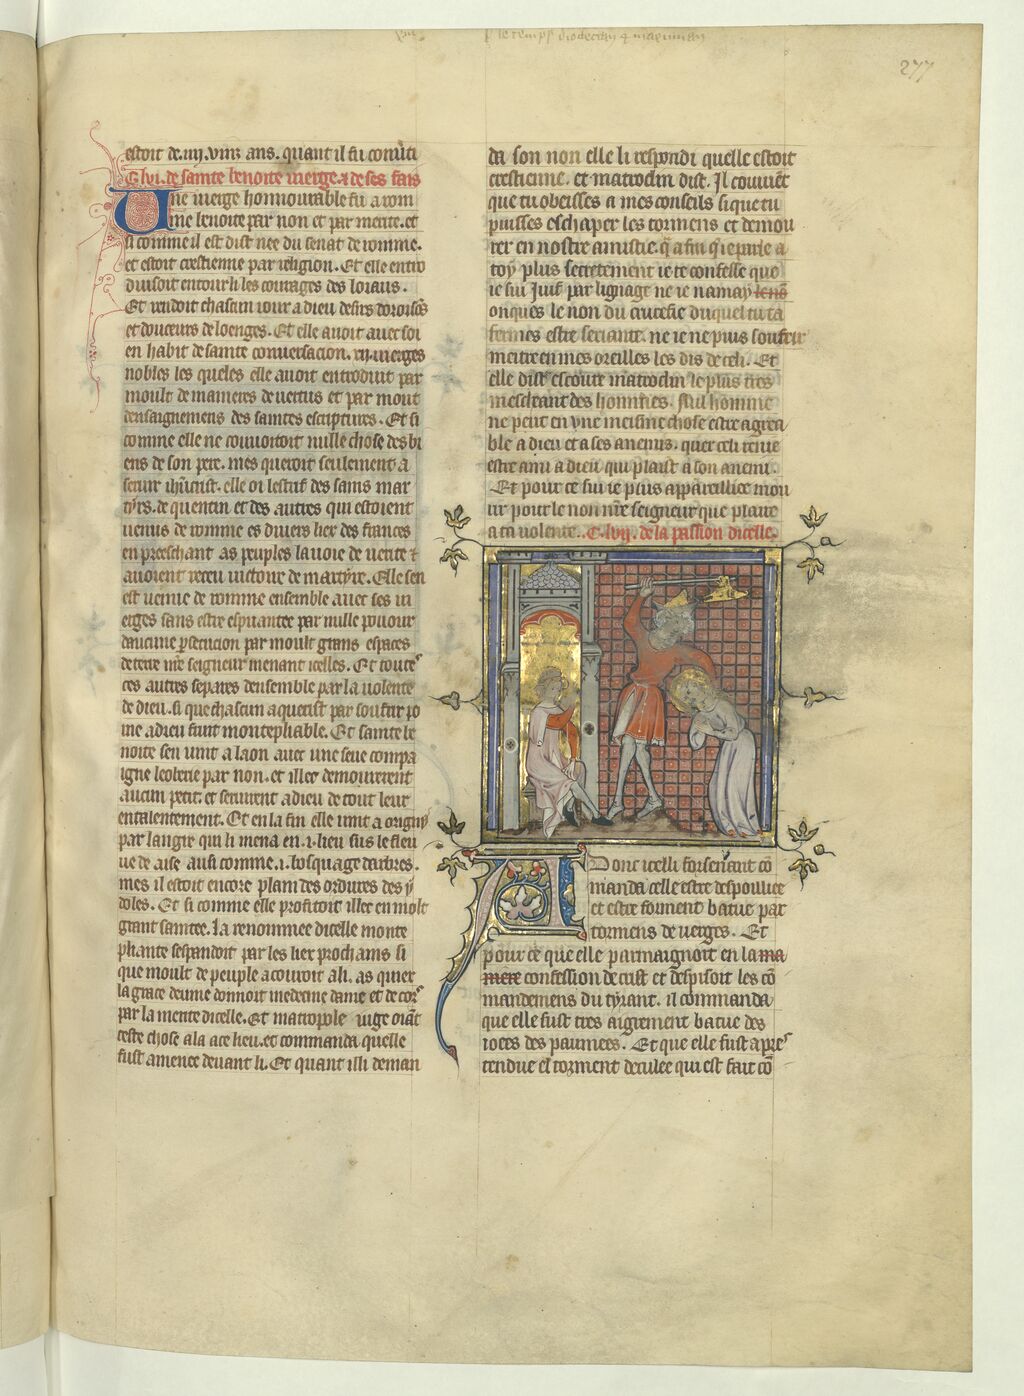 p le temps dyoclecian & maximian
277
estoit de .iiij. vins ans. quant il fu conuti
C lvi. de sainte benoite uierge. & de ses fais
Une uierge honnourable fu a rom
me benoite par non et par merite. et
si comme il est dist nee du senat de romme.
et estoit crestienne par religion. Et elle entro
duisoit entour li les courages des loiaus.
Et rendoit chascun iour a dieu desirs doroisõs
et douceurs de loenges. Et elle auoit auec soi
en habit de sainte conuersacion. xij. uierges
nobles les queles elle auoit entroduit par
moult de manieres de uertus et par mout
densaignemens des saintes escriptures. Et si
comme elle ne couuoitoit nulle chose des bi
ens de son pere. mes queroit seulement a
seruir ihũcrist. elle oi lestrif des sains mar
tyrs. de quentin et des autres qui estoient
uenus de romme es diuers liex des frances
en preeschant as peuples la uoie de uerite &
auoient receu uictoire de martyre. Elle sen
est uenue de romme ensemble auec ses ui
erges sans estre espuantee par nulle pouour
daucune psecucion par moult grans espaces
de terre nr̃e seigneur menant icelles. Et toutes
ces autres separes densemble par la uolente
de dieu. si que chascun aquerist par soufrir ro
ine a dieu fruit montepliable. Et sainte be
noite sen uint a laon auec une seue compa
igne leoberie par non. et illec demourerent
aucun petit. et seruirent a dieu de tout leur
entalentement. Et en la fin elle uint a origny
par langre qui li mena en .i. lieu sus le fleu
ue de aise ausi comme .i. bosquage darbres.
mes il estoit encore plain des ordures des y
doles. Et si comme elle profitoit illec en molt
grant saintee. la renommee dicelle monte
pliante sespandoit par les liex prochains si
que moult de peuple acouroit a li. as quiex
la grace deuine donnoit medecine dame et de cors
par la merite dicelle. Et matrocle iuge oiãt
ceste chose ala a ce lieu. et commanda quelle
fust amenee deuant li. Et quant illi deman
da son non elle li respondi quelle estoit
crestienne. et matroclin dist. Il couuiẽt
que tu obeisses a mes conseils si que tu
puisses eschaper les tormens et demou
rer en nostre amistie. q̃ a fin q̃ ie parle a
toy plus secretement ie te confesse que
ie sui iuif par lignage ne ie namay lens
onques le non du crucefie duquel tu ta
fermes estre seriante. ne ie ne puis soufrir
mettre en mes oreilles les dis de celi. Et
elle dist escoute matroclin le plus tres
mescheant des hommes. Nul homme
ne peut en vne meisme chose estre agrea
ble a dieu et a ses anemis. quer celi renie
estre ami a dieu qui plaist a son anemi.
Et pour ce sui ie plus appareillice mou
rir pour le non nr̃e seigneur que plaire
a ta uolente. C lvij. de la passion dicelle.
ADonc icelli forsenant cõ
manda celle estre despouillee
et estre forment batue par
tormens de uerges. Et
pour ce que elle parmaignoit en la ma
niere confession de crist et despisoit les cõ
mandemens du tyrant. il commanda
que elle fust tres aigrement batue des
ioces des paumees. Et que elle fust apres
tendue el torment deculee qui est fait cõ